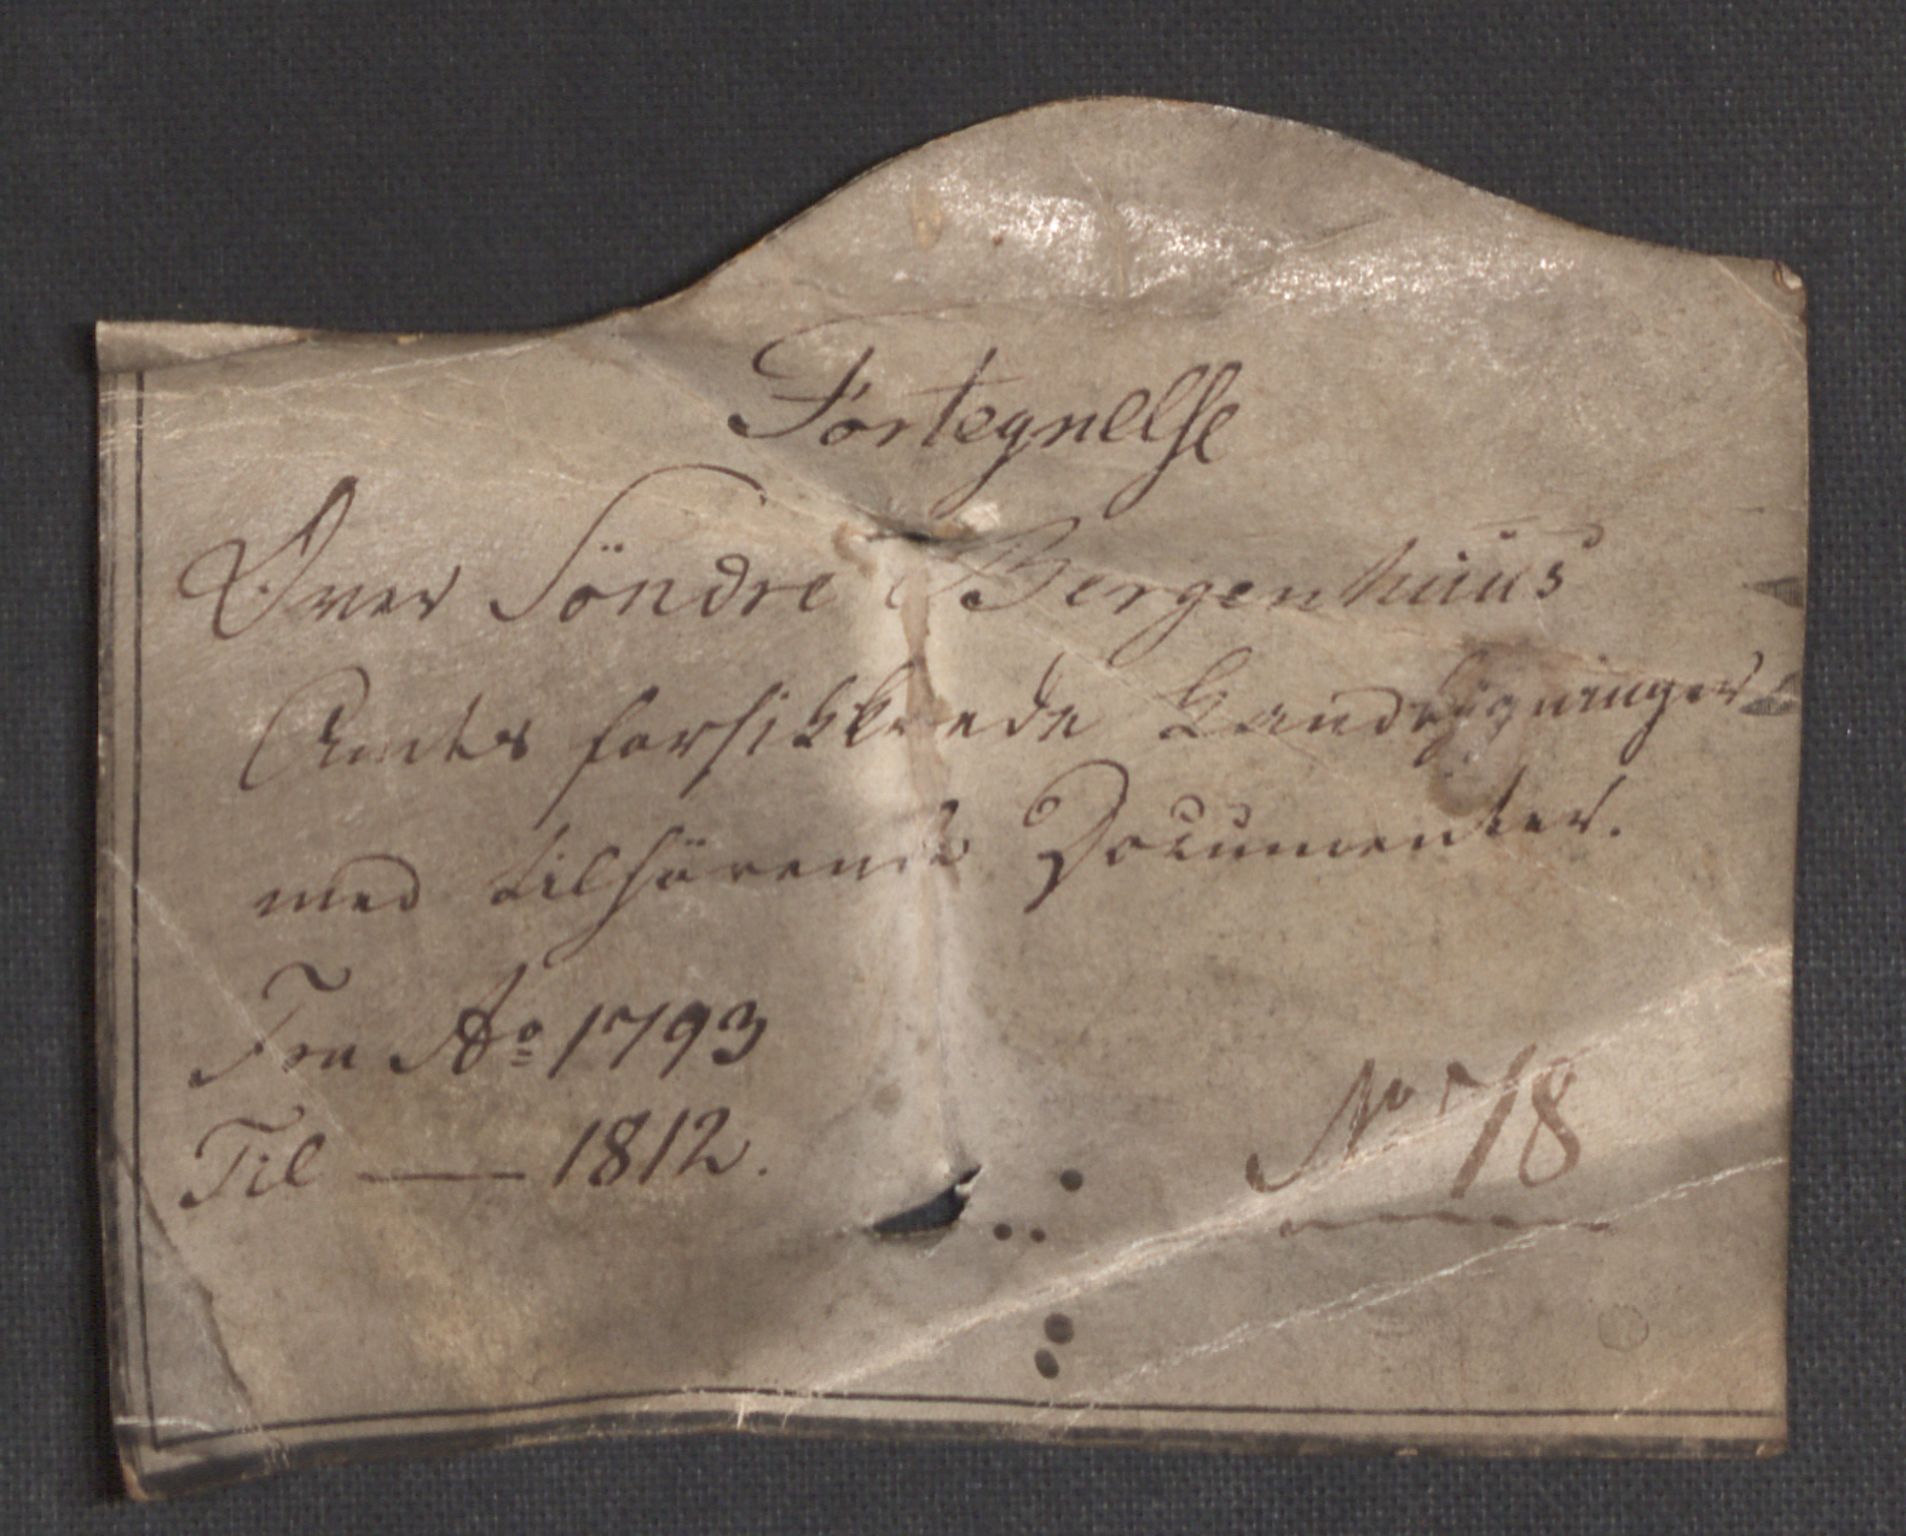 Fortegnelse
Over Söndre Bergenhuus
Amts forsikkrede Landbÿgninger
med tilhörende Documenter.
Fra Ao 1793
Til — 1812.
No 78